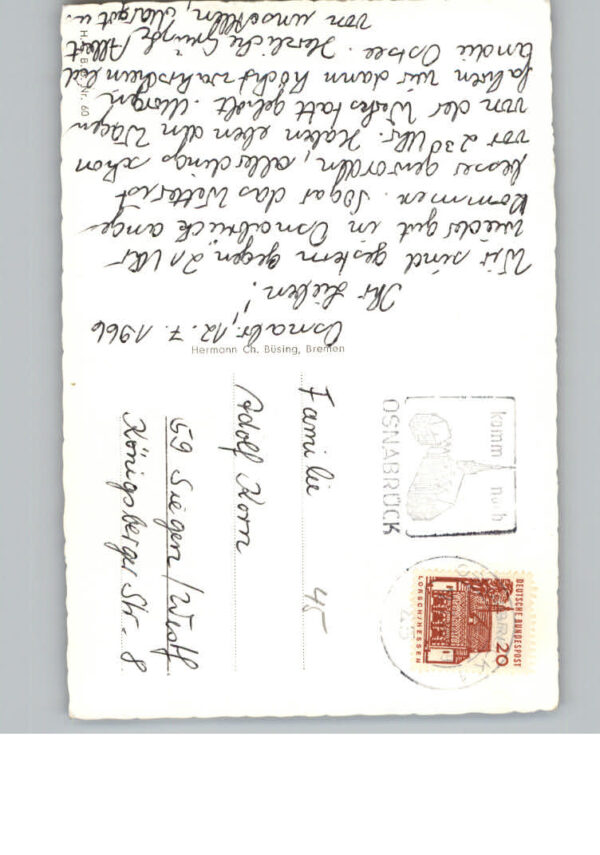 Osnabr., 12. 7. 1966
Ihr Lieben!
Wir sind gestern gegen 21 Uhr
wieder gut in Osnabrück ange-
kommen. Sogar das Wetter ist
besser geworden, allerdings schon
vor 230 Uhr. Haben eben den Wagen
von der Werkstatt geholt. Morgen
fahren wir dann höchstwahrscheinlich
an die Ostsee. Herzliche Grüße
von uns allen, Margot u.
Albert
Hermann Ch. Büsing, Bremen
Nr. 60
komm nach
OSNABRÜCK
DEUTSCHE BUNDESPOST
20
LORSCH/HESSEN
Familie
Adolf Korn
59 Siegen/Westf
Königsberger Str. 8
45